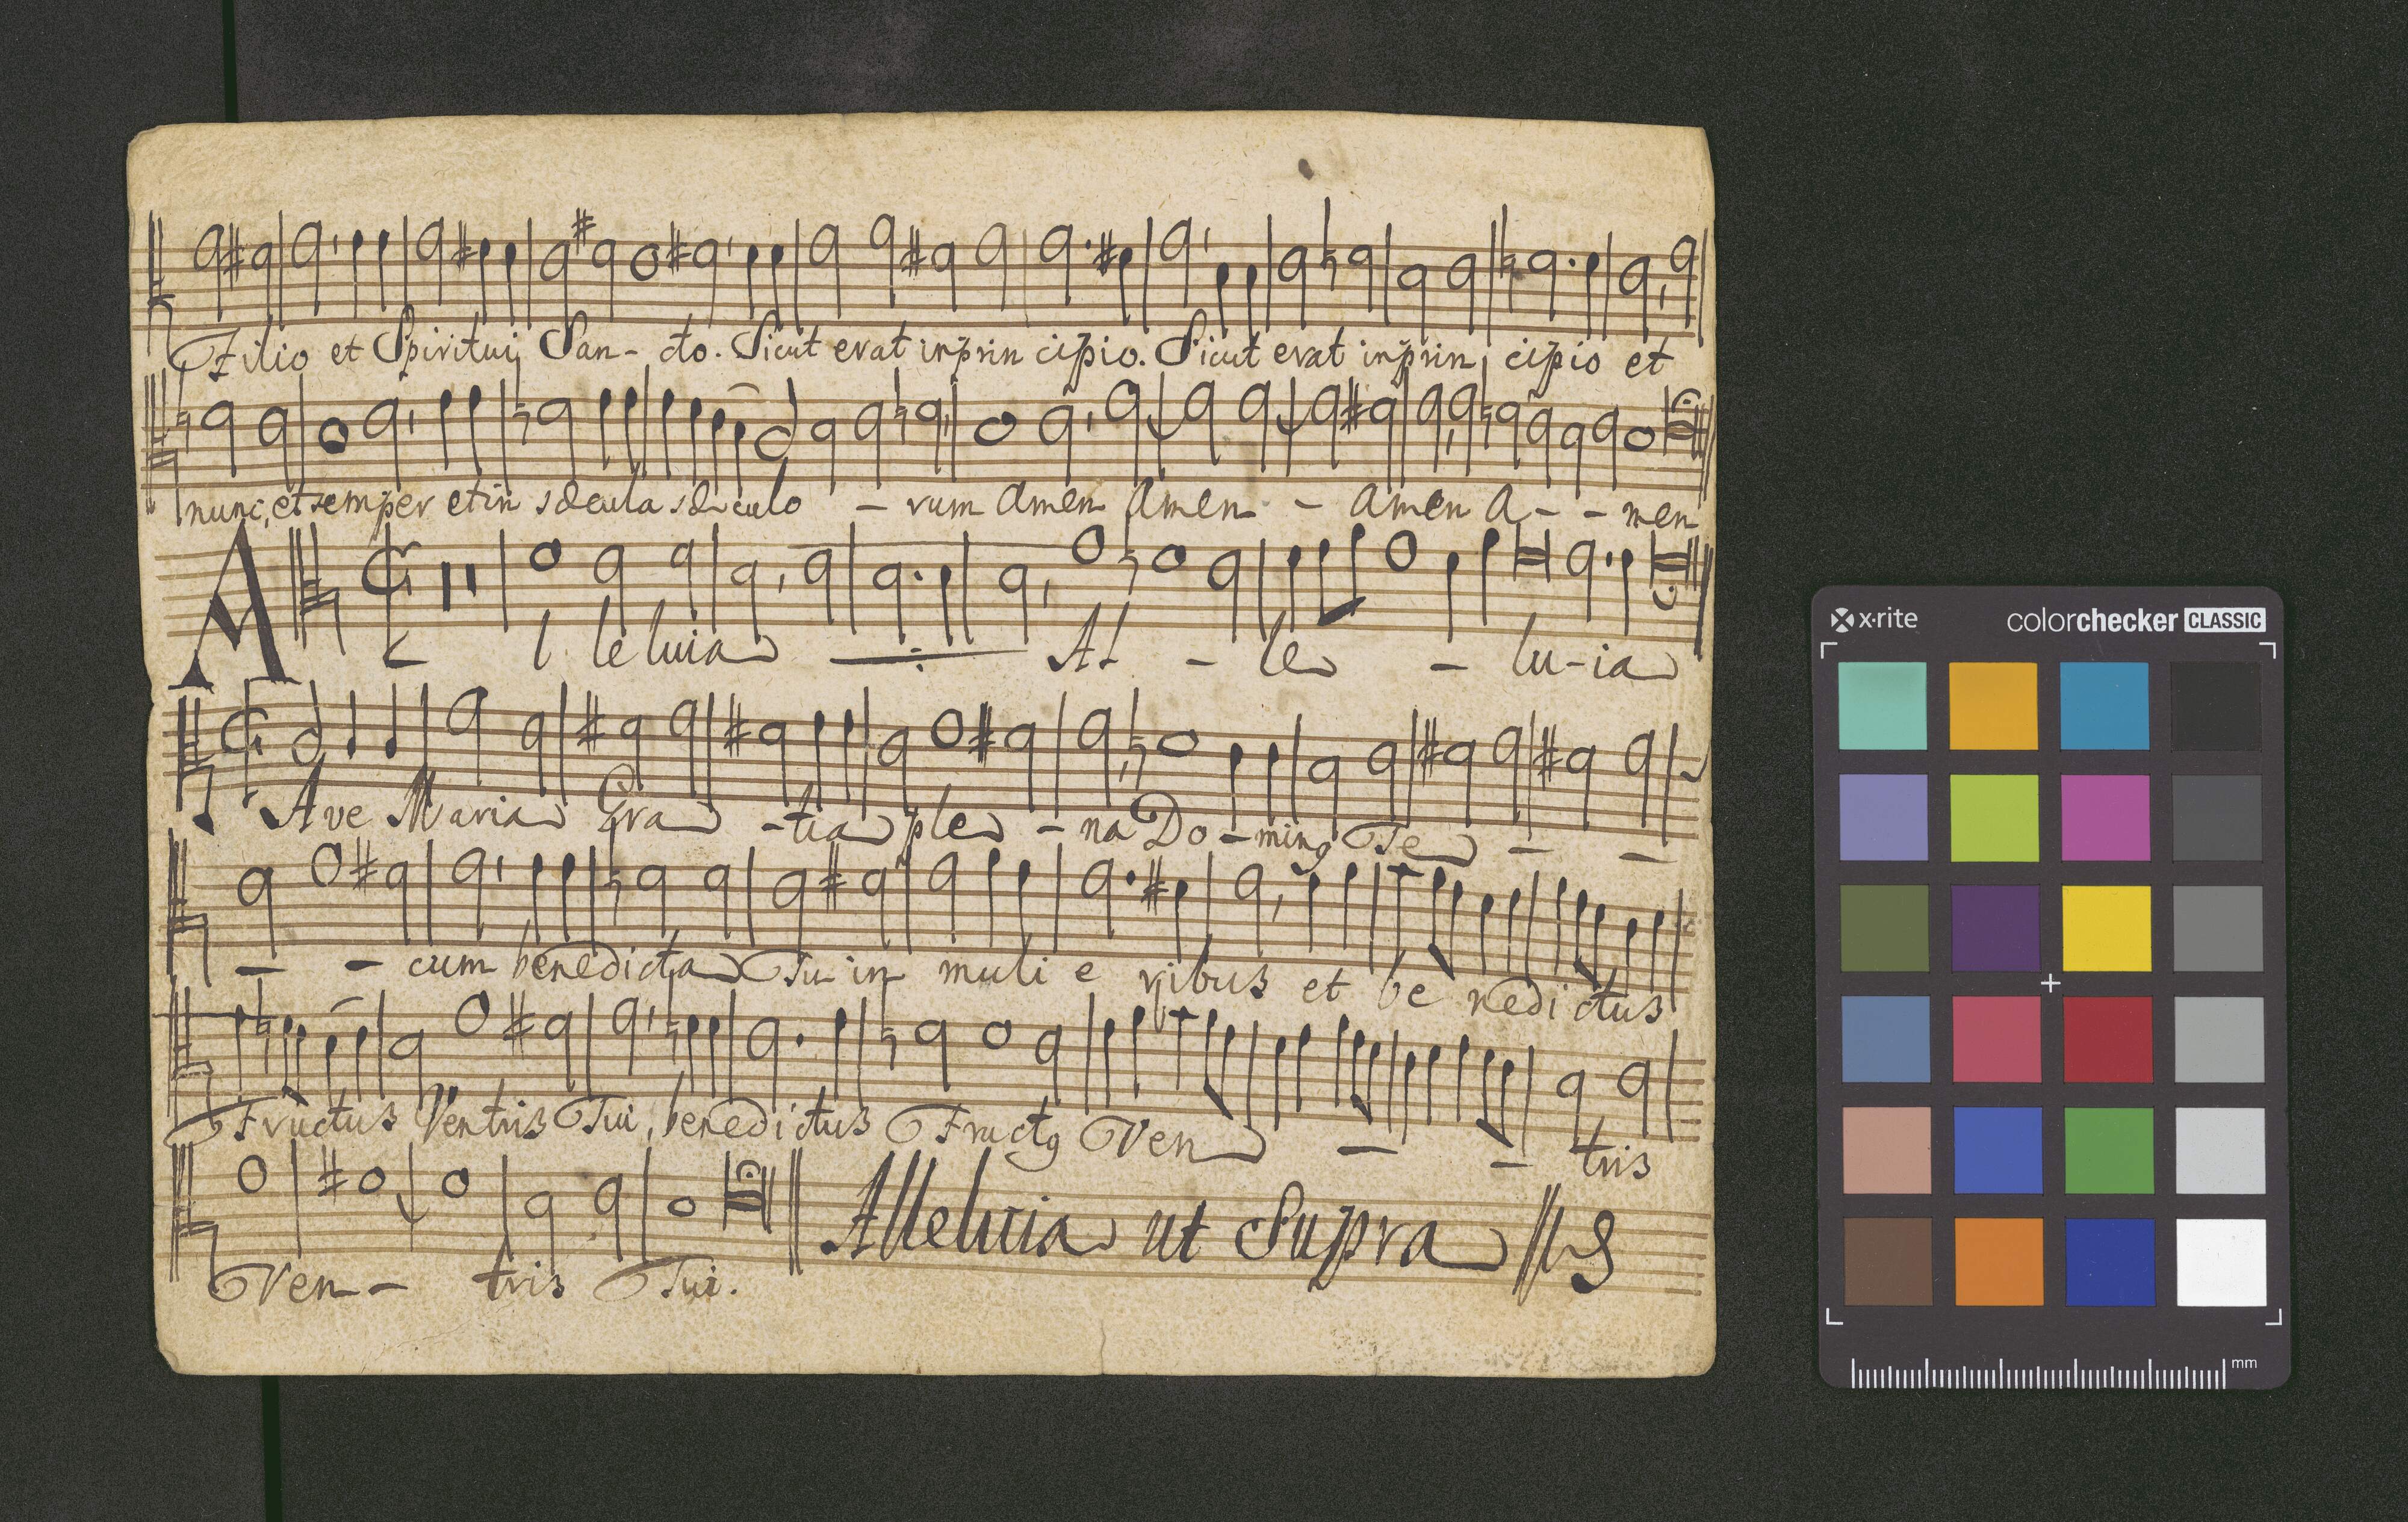 Filio et Spiritui San- cto. Sicut erat in prin cipio. Sicut erat in prin cipio et
nunc, et semper et in sæcula sæ culo - rum amen amen - amen a - - men
Al leluia Al - le - lu-ia
Ave Maria Gra -tia ple - na Do -min9 Te - -
- - cum benedicta Tu in muli e ribus et be nedi ctus
Fructus Ventris Tui, benedictus Fruct9 Ven - - tris
Ven - tris Tui. Alleluia ut Supra
x·rite colorchecker CLASSIC
mm